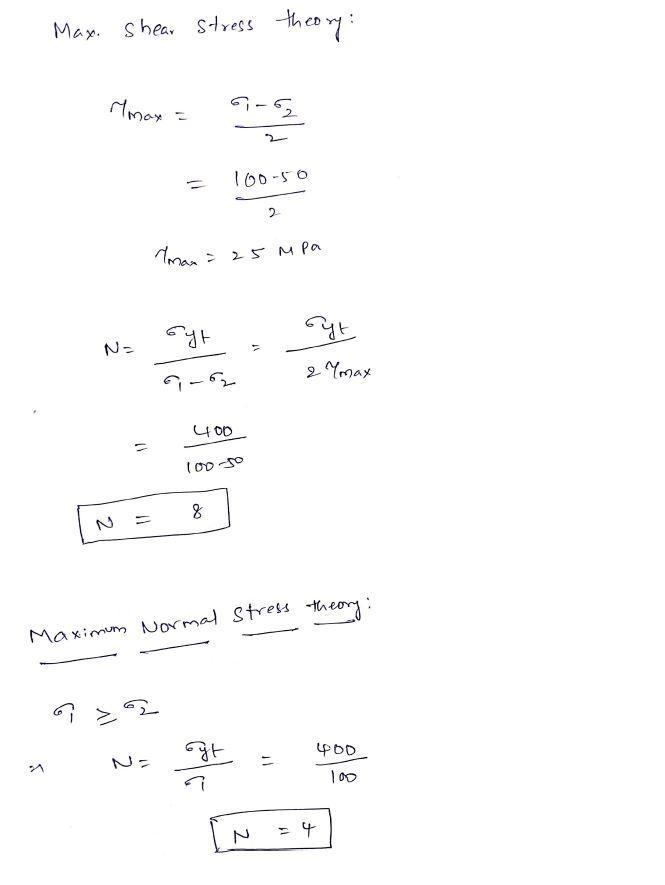 Max. Shear Stress theory:
τmax = (σ1 - σ2) / 2
= (100-50) / 2
τmax = 25 MPa
N = σyt / (σ1 - σ2) = σyt / (2 τmax)
= 400 / (100-50)
N = 8
Maximum Normal Stress theory:
σ1 ≥ σ2
⇒ N = σyt / σ1 = 400 / 100
N = 4